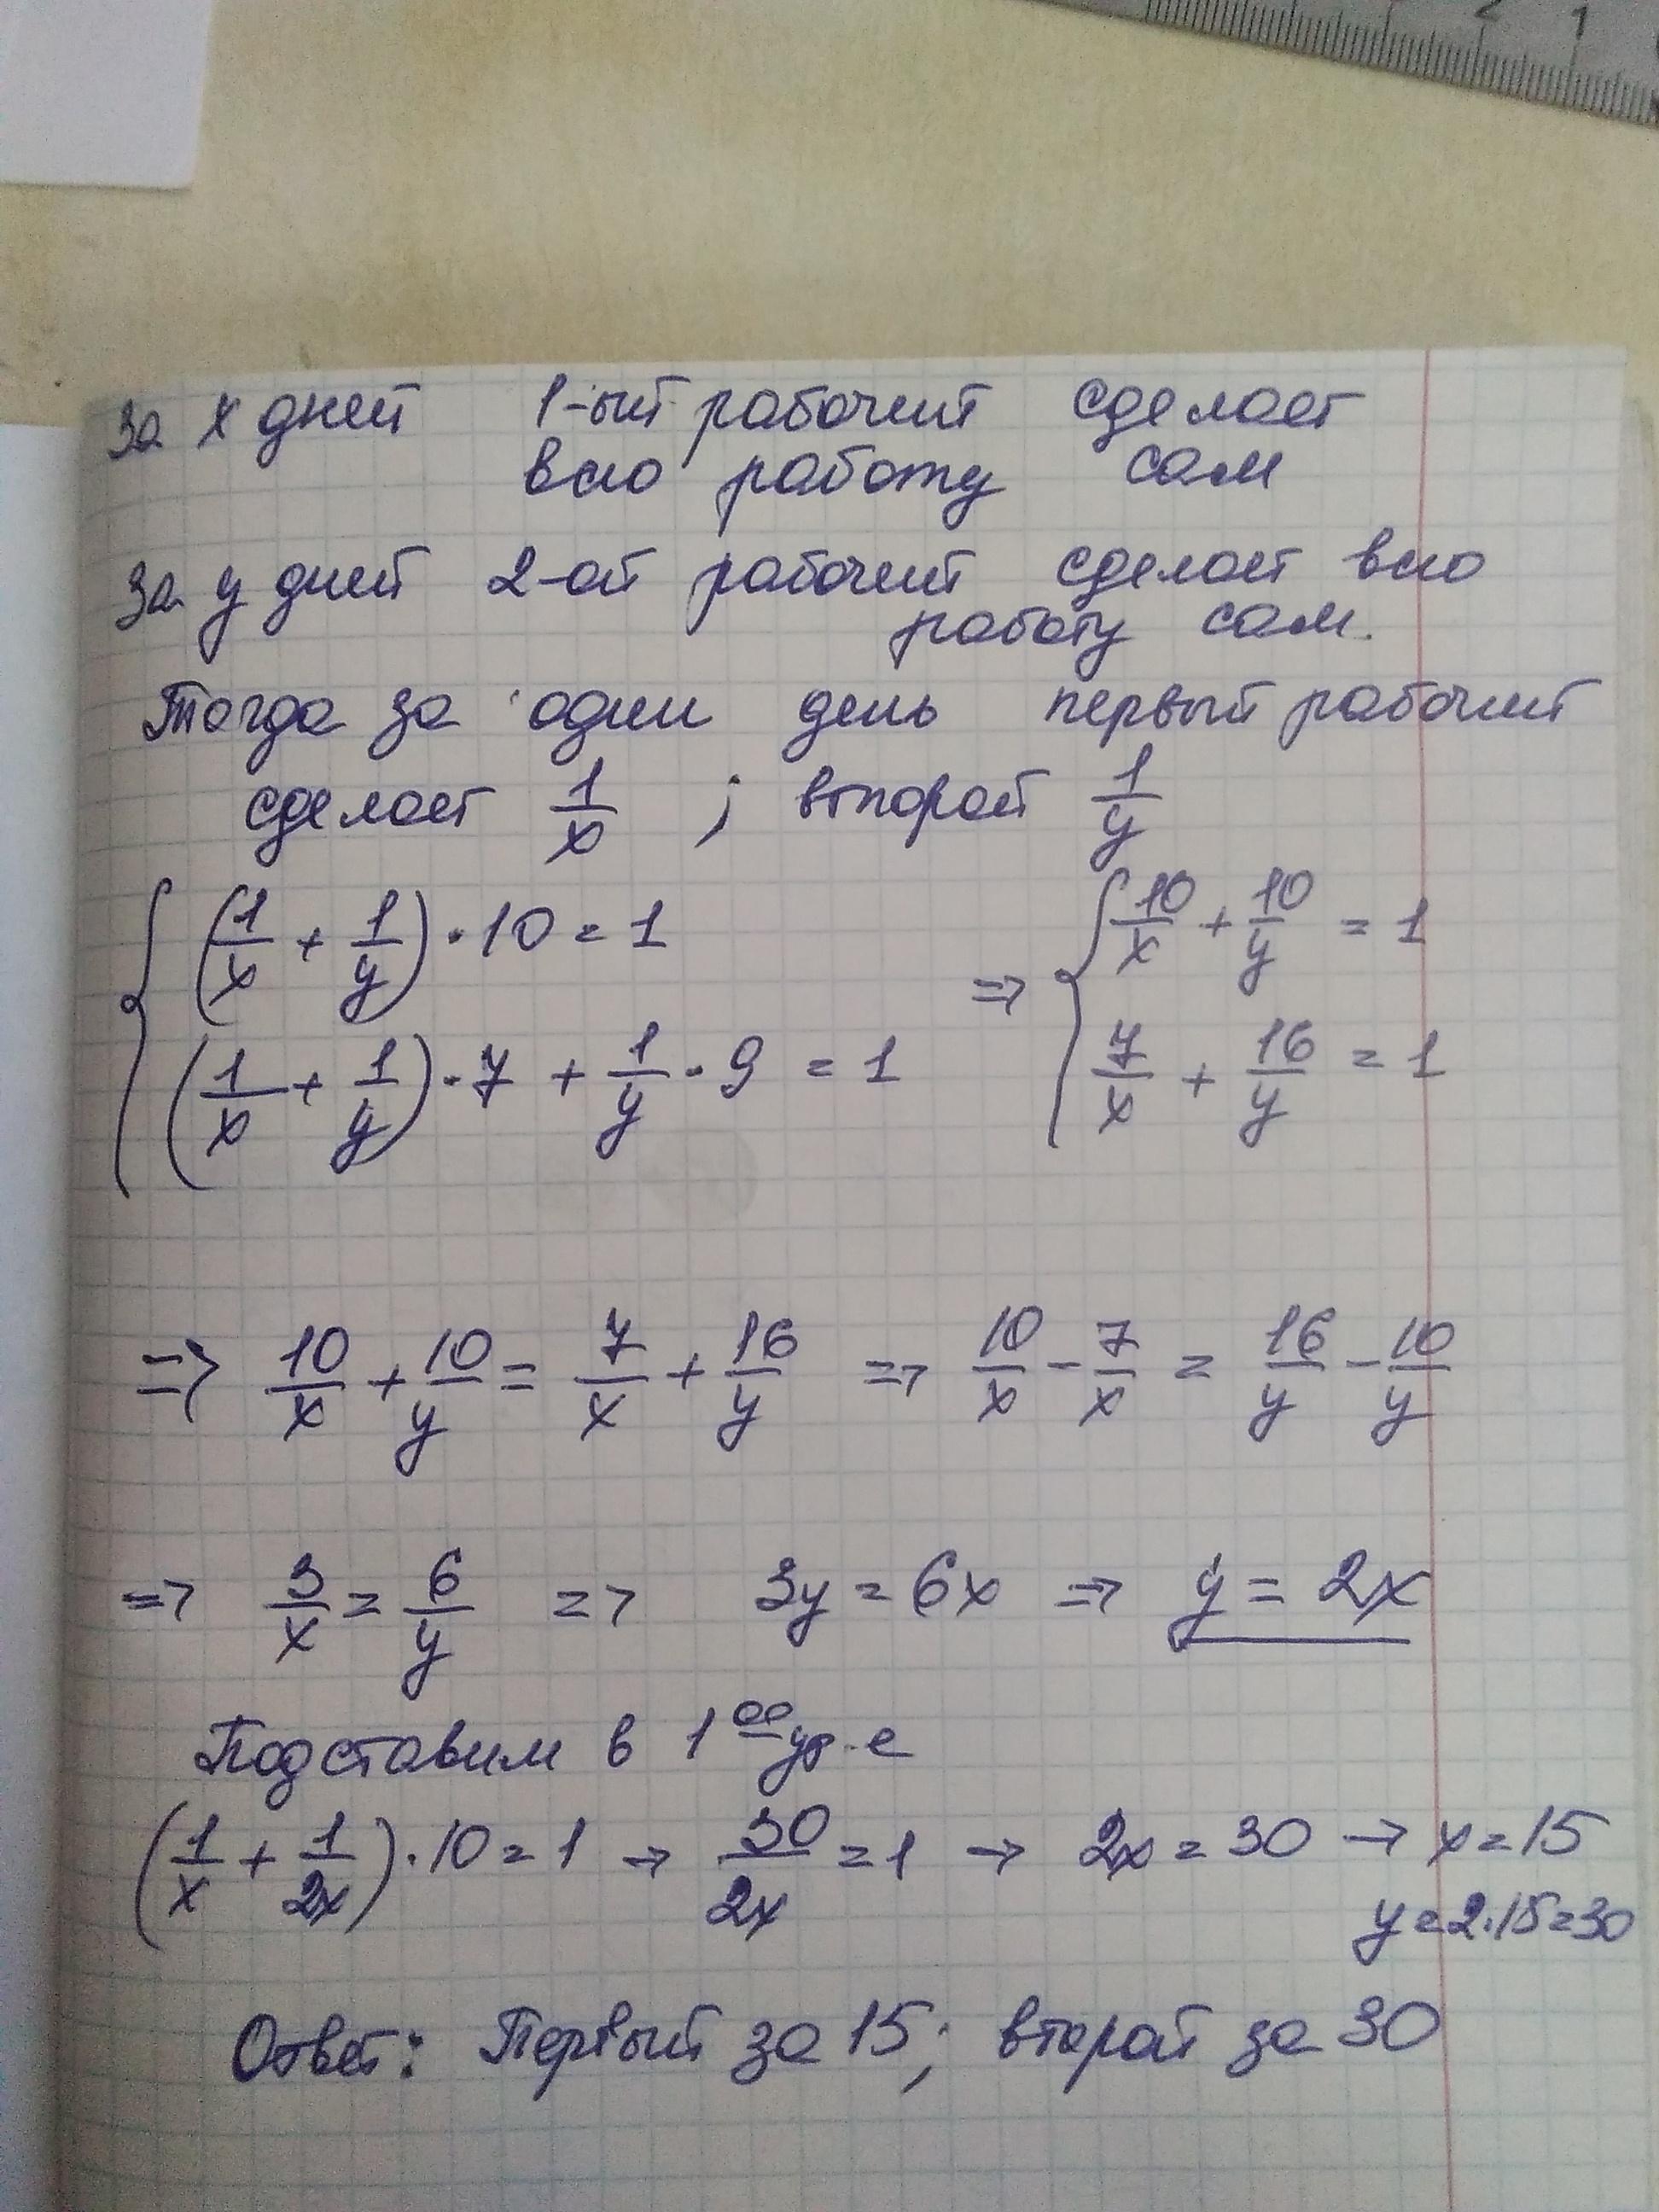 2 1
за x дней 1-ый рабочий сделает
всю работу сам
за y дней 2-ой рабочий сделает всю
работу сам.
Тогда за один день первый рабочий
сделает 1/x ; второй 1/y
{ (1/x + 1/y) · 10 = 1 => { 10/x + 10/y = 1
(1/x + 1/y) · 7 + 1/y · 9 = 1 7/x + 16/y = 1
=> 10/x + 10/y = 7/x + 16/y => 10/x - 7/x = 16/y - 10/y
=> 3/x = 6/y => 3y = 6x => y = 2x
Подставим в 1ое ур-е
(1/x + 1/2x) · 10 = 1 → 30/2x = 1 → 2x = 30 → x = 15
y = 2·15 = 30
Ответ: Первый за 15; второй за 30